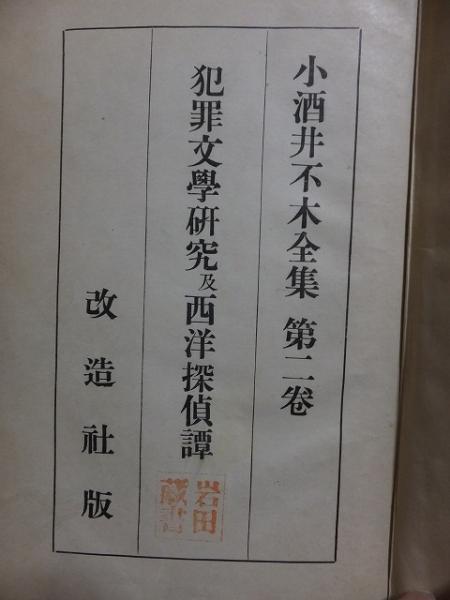 小酒井不木全集 第二卷
犯罪文學硏究及西洋探偵譚
岩田
藏書
改造社版